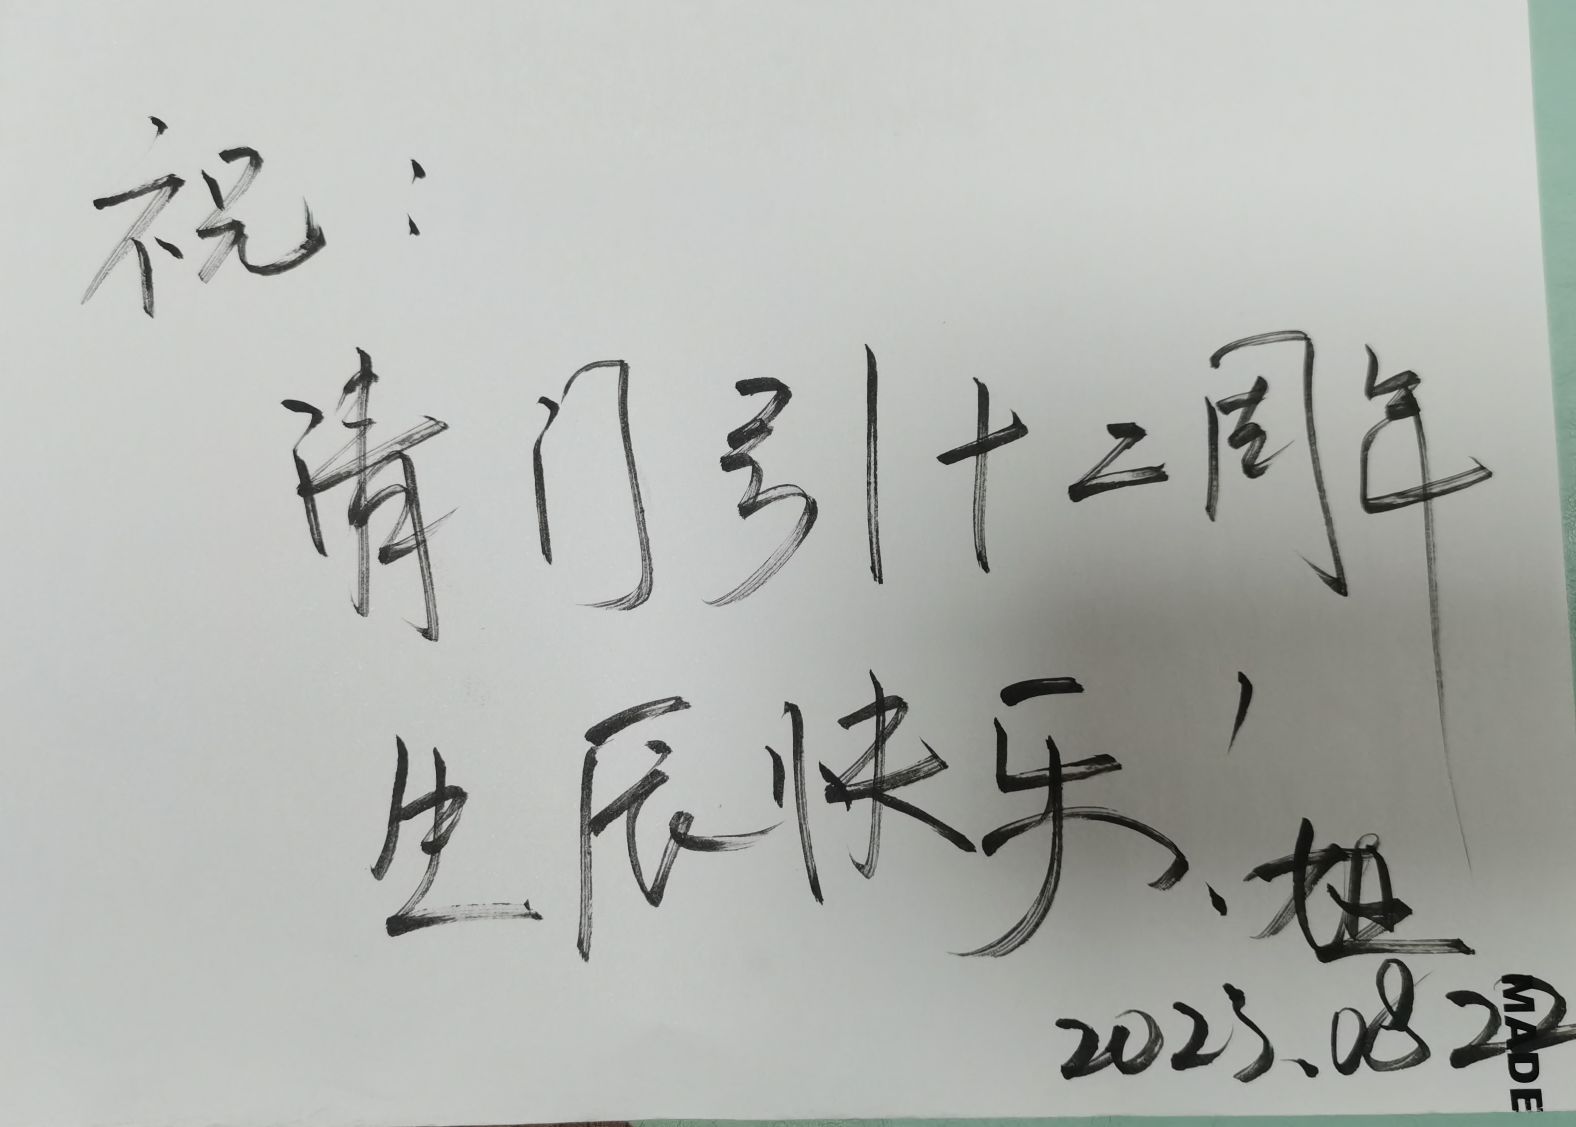 祝：
清门引十二周年
生辰快乐！
2023.08.22
MADE